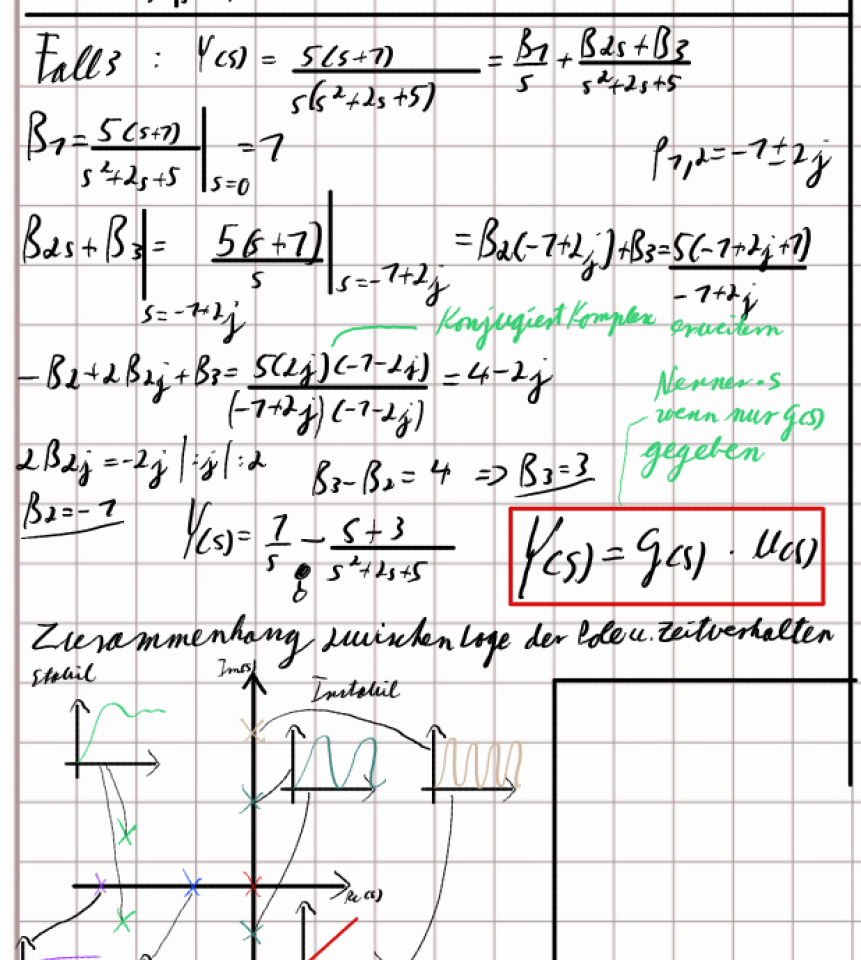 Fall 3 : Y(s) = 5(s+1) / s(s²+2s+5) = B₁/s + B₂s+B₃ / s²+2s+5
B₁ = 5(s+1) / s²+2s+5 |s=0 = 1
P₁,₂ = -1 ± 2j
B₂s + B₃ |s=-1+2j = 5(s+1) / s |s=-1+2j = B₂(-1+2j)+B₃ = 5(-1+2j+1) / -1+2j
Konjugiert Komplex erweitern
-B₂+2B₂j+B₃ = 5(2j)(-1-2j) / (-1+2j)(-1-2j) = 4-2j
Nenner·s
wenn nur G(s)
gegeben
2B₂j = -2j |:j|:2
B₃-B₂ = 4 => B₃=3
B₂=-1
Y(s) = 1/s - s+3 / s²+2s+5
Y(s) = G(s) · U(s)
Zusammenhang zwischen Lage der Pole u. Zeitverhalten
Stabil
Im(s)
Instabil
Re(s)